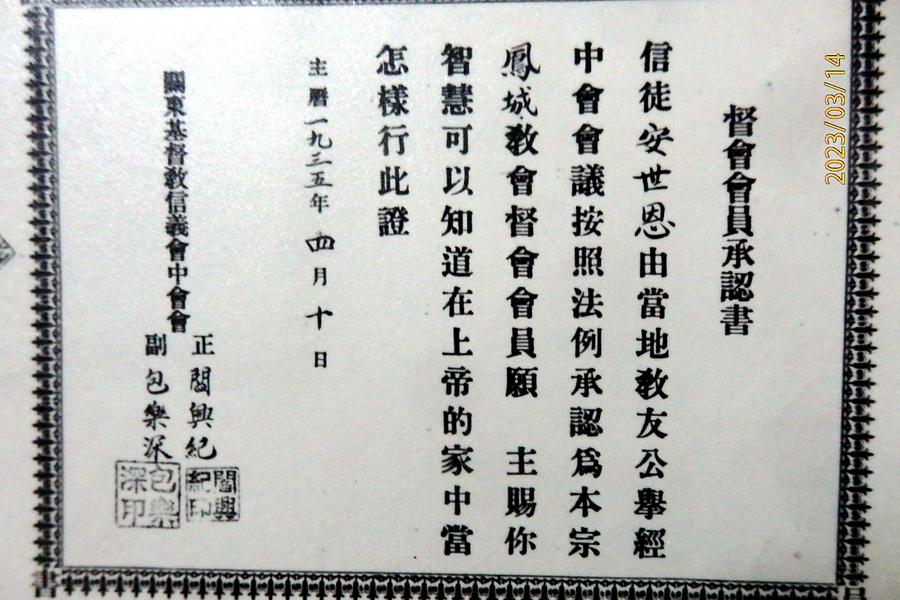 督會會員承認書
信徒安世恩由當地教友公舉經
中會會議按照法例承認爲本宗
鳳城教會督會會員願　主賜你
智慧可以知道在上帝的家中當
怎樣行此證
主曆一九三五年四月十日
關東基督教信義會中會會
正 閻興紀
副 包樂深
閻興紀印
包樂深印
2023/03/14